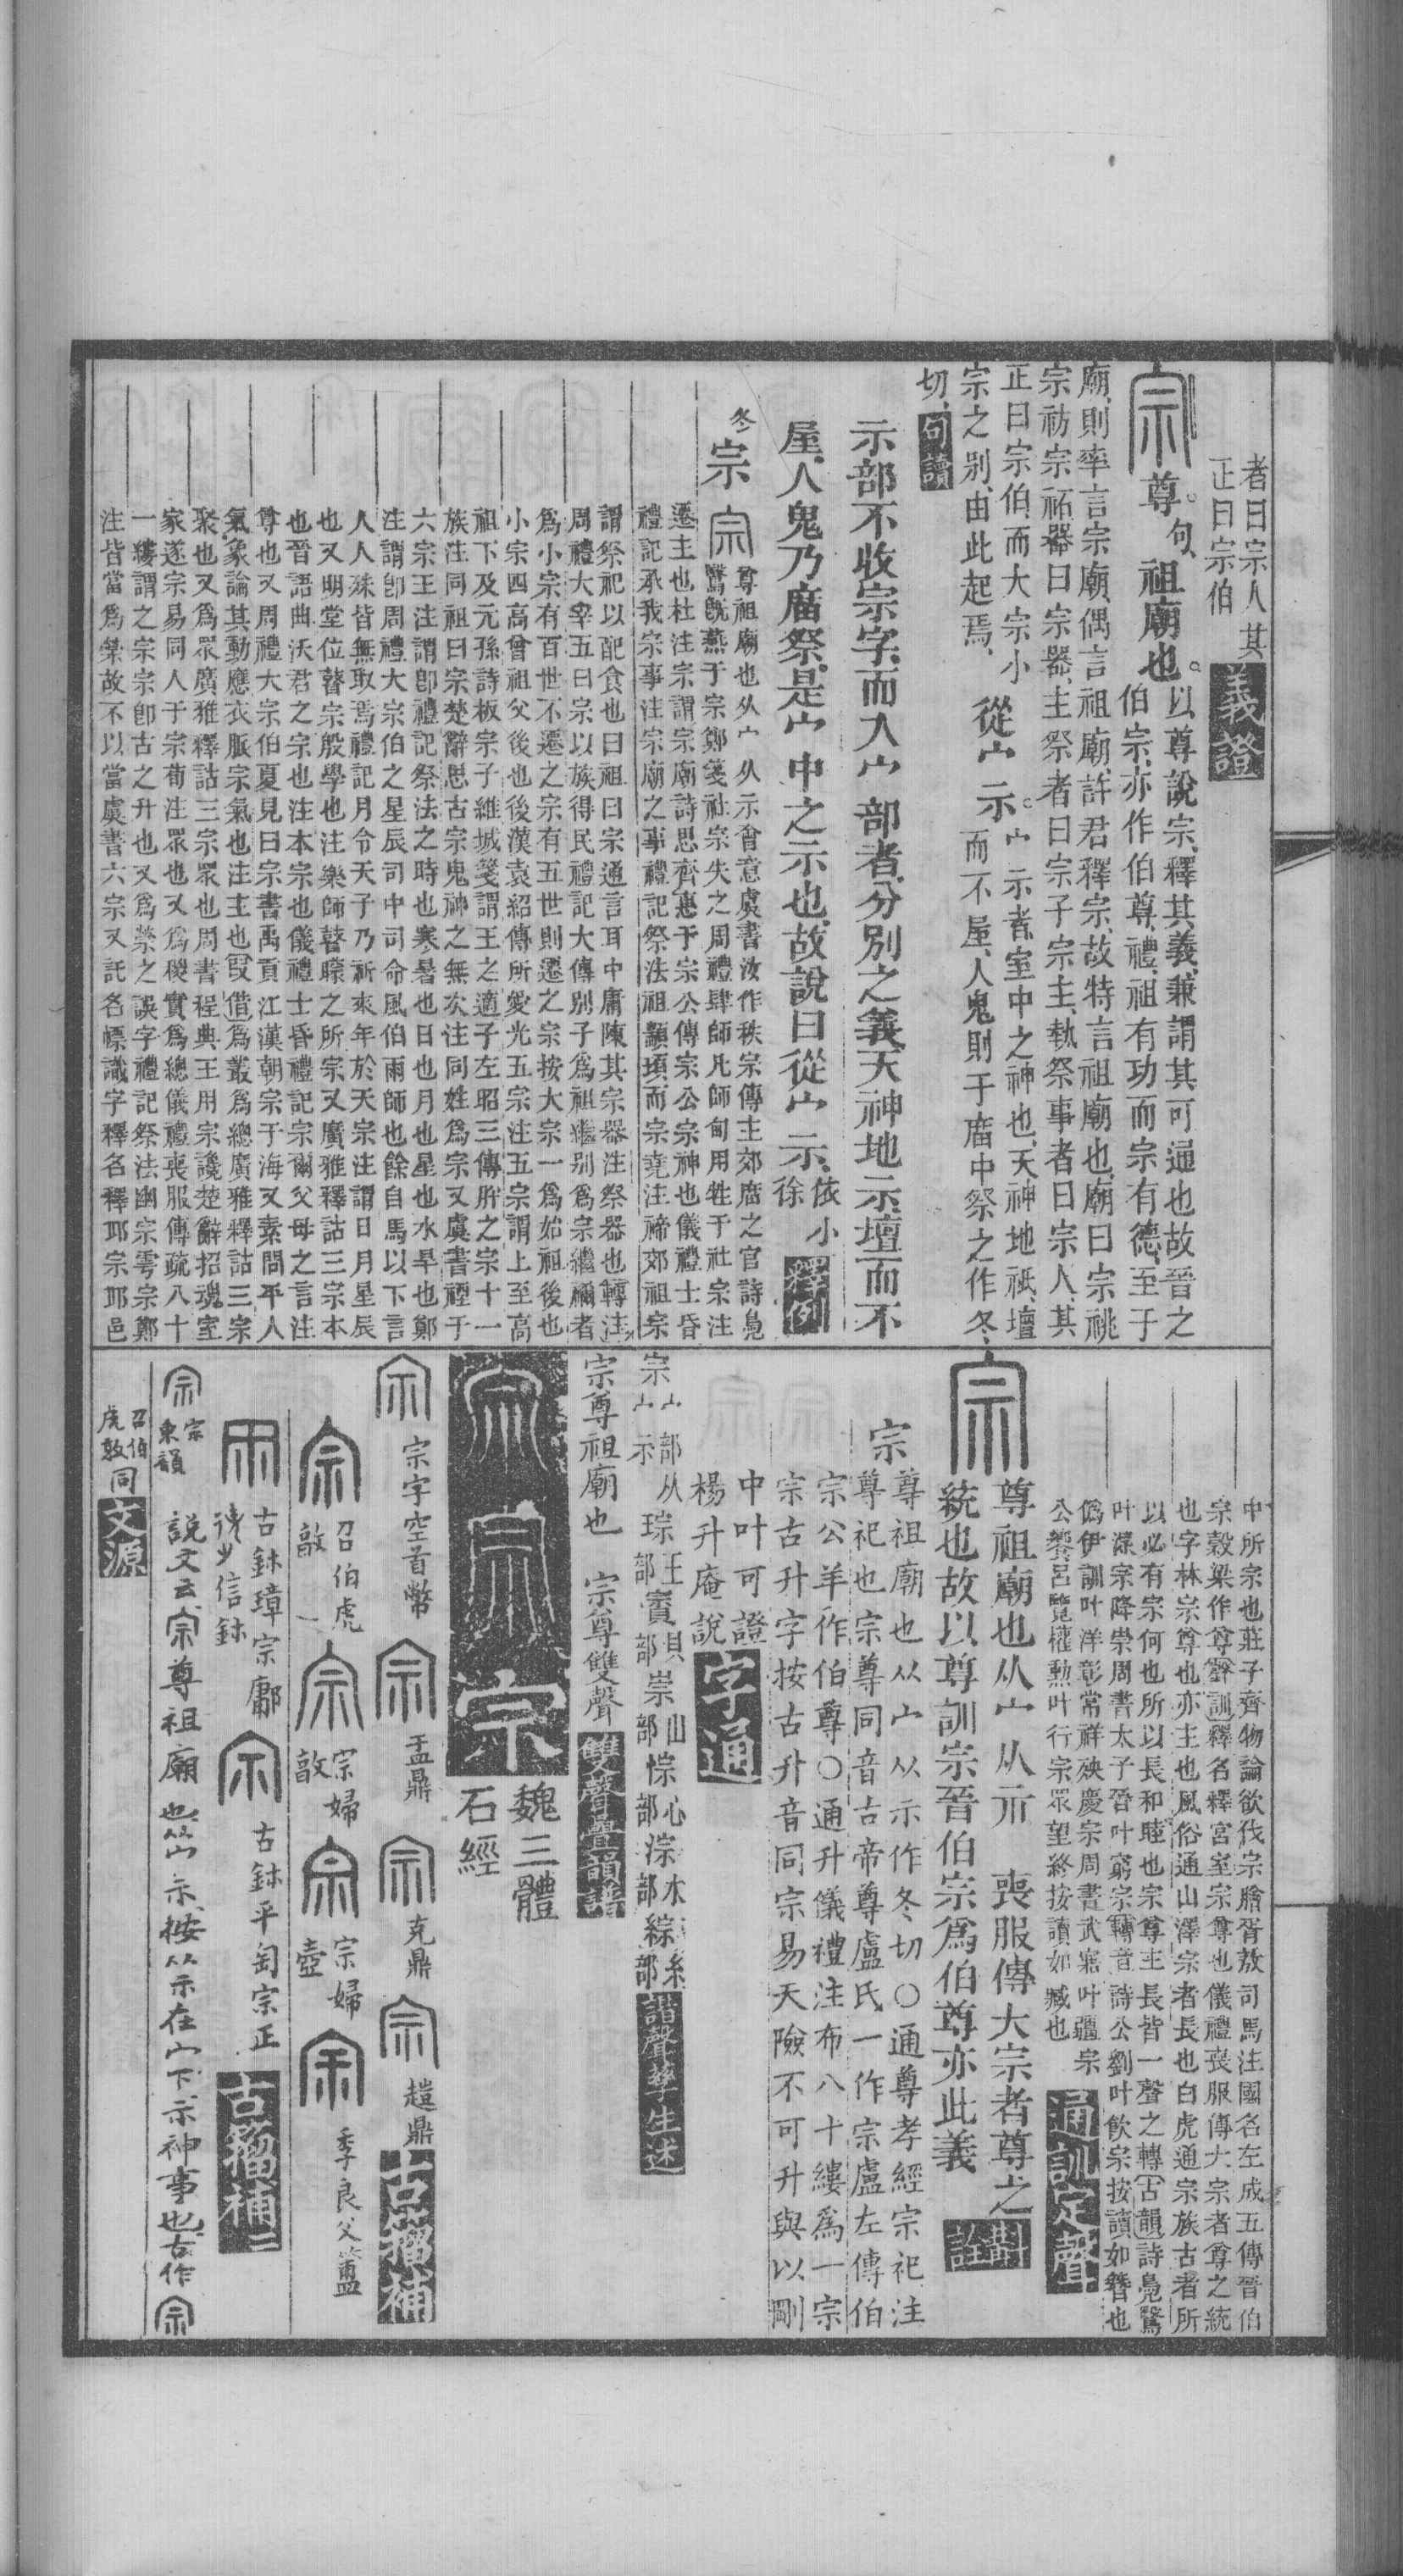 者曰宗人其
正曰宗伯
義證
宗
尊句祖廟也
以尊說宗釋其義兼謂其可通也故晉之
伯宗亦作伯尊禮祖有功而宗有德至于
廟則率言宗廟偶言祖廟許君釋宗故特言祖廟也廟曰宗祧
宗祊宗祏器曰宗器主祭者曰宗子宗主執祭事者曰宗人其
正曰宗伯而大宗小
宗之別由此起焉
從宀示
宀示者室中之神也天神地祇壇
而不屋人鬼則于廟中祭之作冬
切
句讀
示部不收宗字而入宀部者分別之義天神地示壇而不
屋人鬼乃廟祭是宀中之示也故說曰從宀示
依小
徐
釋例
冬宗
宗
尊祖廟也从宀从示會意虞書汝作秩宗傳主郊廟之官詩鳧
鷖旣燕于宗鄭箋社宗失之周禮肆師凡師甸用牲于社宗注
遷主也杜注宗謂宗廟詩思齊惠于宗公傳宗公宗神也儀禮士昏
禮記承我宗事注宗廟之事禮記祭法祖顓頊而宗堯注禘郊祖宗
謂祭祀以配食也曰祖曰宗通言耳中庸陳其宗器注祭器也轉注
周禮大宰五曰宗以族得民禮記大傳別子爲祖繼別爲宗繼禰者
爲小宗有百世不遷之宗有五世則遷之宗按大宗一爲始祖後也
小宗四高曾祖父後也後漢袁紹傳所愛光五宗注五宗謂上至高
祖下及元孫詩板宗子維城箋謂王之適子左昭三傳肸之宗十一
族注同祖曰宗楚辭思古宗鬼神之無次注同姓爲宗又虞書禋于
六宗王注謂卽禮記祭法之時也寒暑也日也月也星也水旱也鄭
注謂卽周禮大宗伯之星辰司中司命風伯雨師也餘自馬以下言
人人殊皆無取焉禮記月令天子乃祈來年於天宗注謂日月星辰
也又明堂位瞽宗殷學也注樂師瞽矇之所宗又廣雅釋詁三宗本
也晉語曲沃君之宗也注本宗也儀禮士昏禮記宗爾父母之言注
尊也又周禮大宗伯夏見曰宗書禹貢江漢朝宗于海又素問平人
氣象論其動應衣脈宗氣也注主也叚借爲叢爲總廣雅釋詁三宗
聚也又爲眾廣雅釋詁三宗眾也周書程典王用宗讒楚辭招魂室
家遂宗易同人于宗荀注眾也又爲稯實爲總儀禮喪服傳疏八十
一縷謂之宗宗卽古之升也又爲禜之誤字禮記祭法幽宗雩宗鄭
注皆當爲禜故不以當虞書六宗又託名幖識字釋名釋邱宗邱邑
中所宗也莊子齊物論欲伐宗膾胥敖司馬注國名左成五傳晉伯
宗穀梁作尊聲訓釋名釋宮室宗尊也儀禮喪服傳大宗者尊之統
也字林宗尊也亦主也風俗通山澤宗者長也白虎通宗族古者所
以必有宗何也所以長和睦也宗尊主長皆一聲之轉古韻詩鳧鷖
叶潀宗降崇周書太子晉叶窮宗轉音詩公劉叶飲宗按讀如簪也
僞伊訓叶洋彰常祥殃慶宗周書武寤叶疆宗
公饗呂覽權勳叶行宗眾望終按讀如臧也
通訓定聲
宗
尊祖廟也从宀从示 喪服傳大宗者尊之
統也故以尊訓宗晉伯宗爲伯尊亦此義
斠詮
宗
尊祖廟也从宀从示作冬切○通尊孝經宗祀注
尊祀也宗尊同音古帝尊盧氏一作宗盧左傳伯
宗公羊作伯尊○通升儀禮注布八十縷爲一宗
宗古升字按古升音同宗易天險不可升與以剛
中叶可證
楊升庵說
字通
宗宀部从宀示
琮王部
賨貝部
崇山部
悰心部
淙水部
綜糸部
諧聲孳生述
宗尊祖廟也 宗尊雙聲
雙聲疊韻譜
宗
魏三體
石經
宗
宗字空首幣
盂鼎
克鼎
趞鼎
古籀補
召伯虎
敦
宗婦
敦
宗婦
壺
季良父簠
古鉥璋宗鄘
信鉥
古鉥平匋宗正
古籀補二
宗
宗東韻
說文云宗尊祖廟也从宀示按从示在宀下示神事也古作宗
召伯
虎敦同
文源